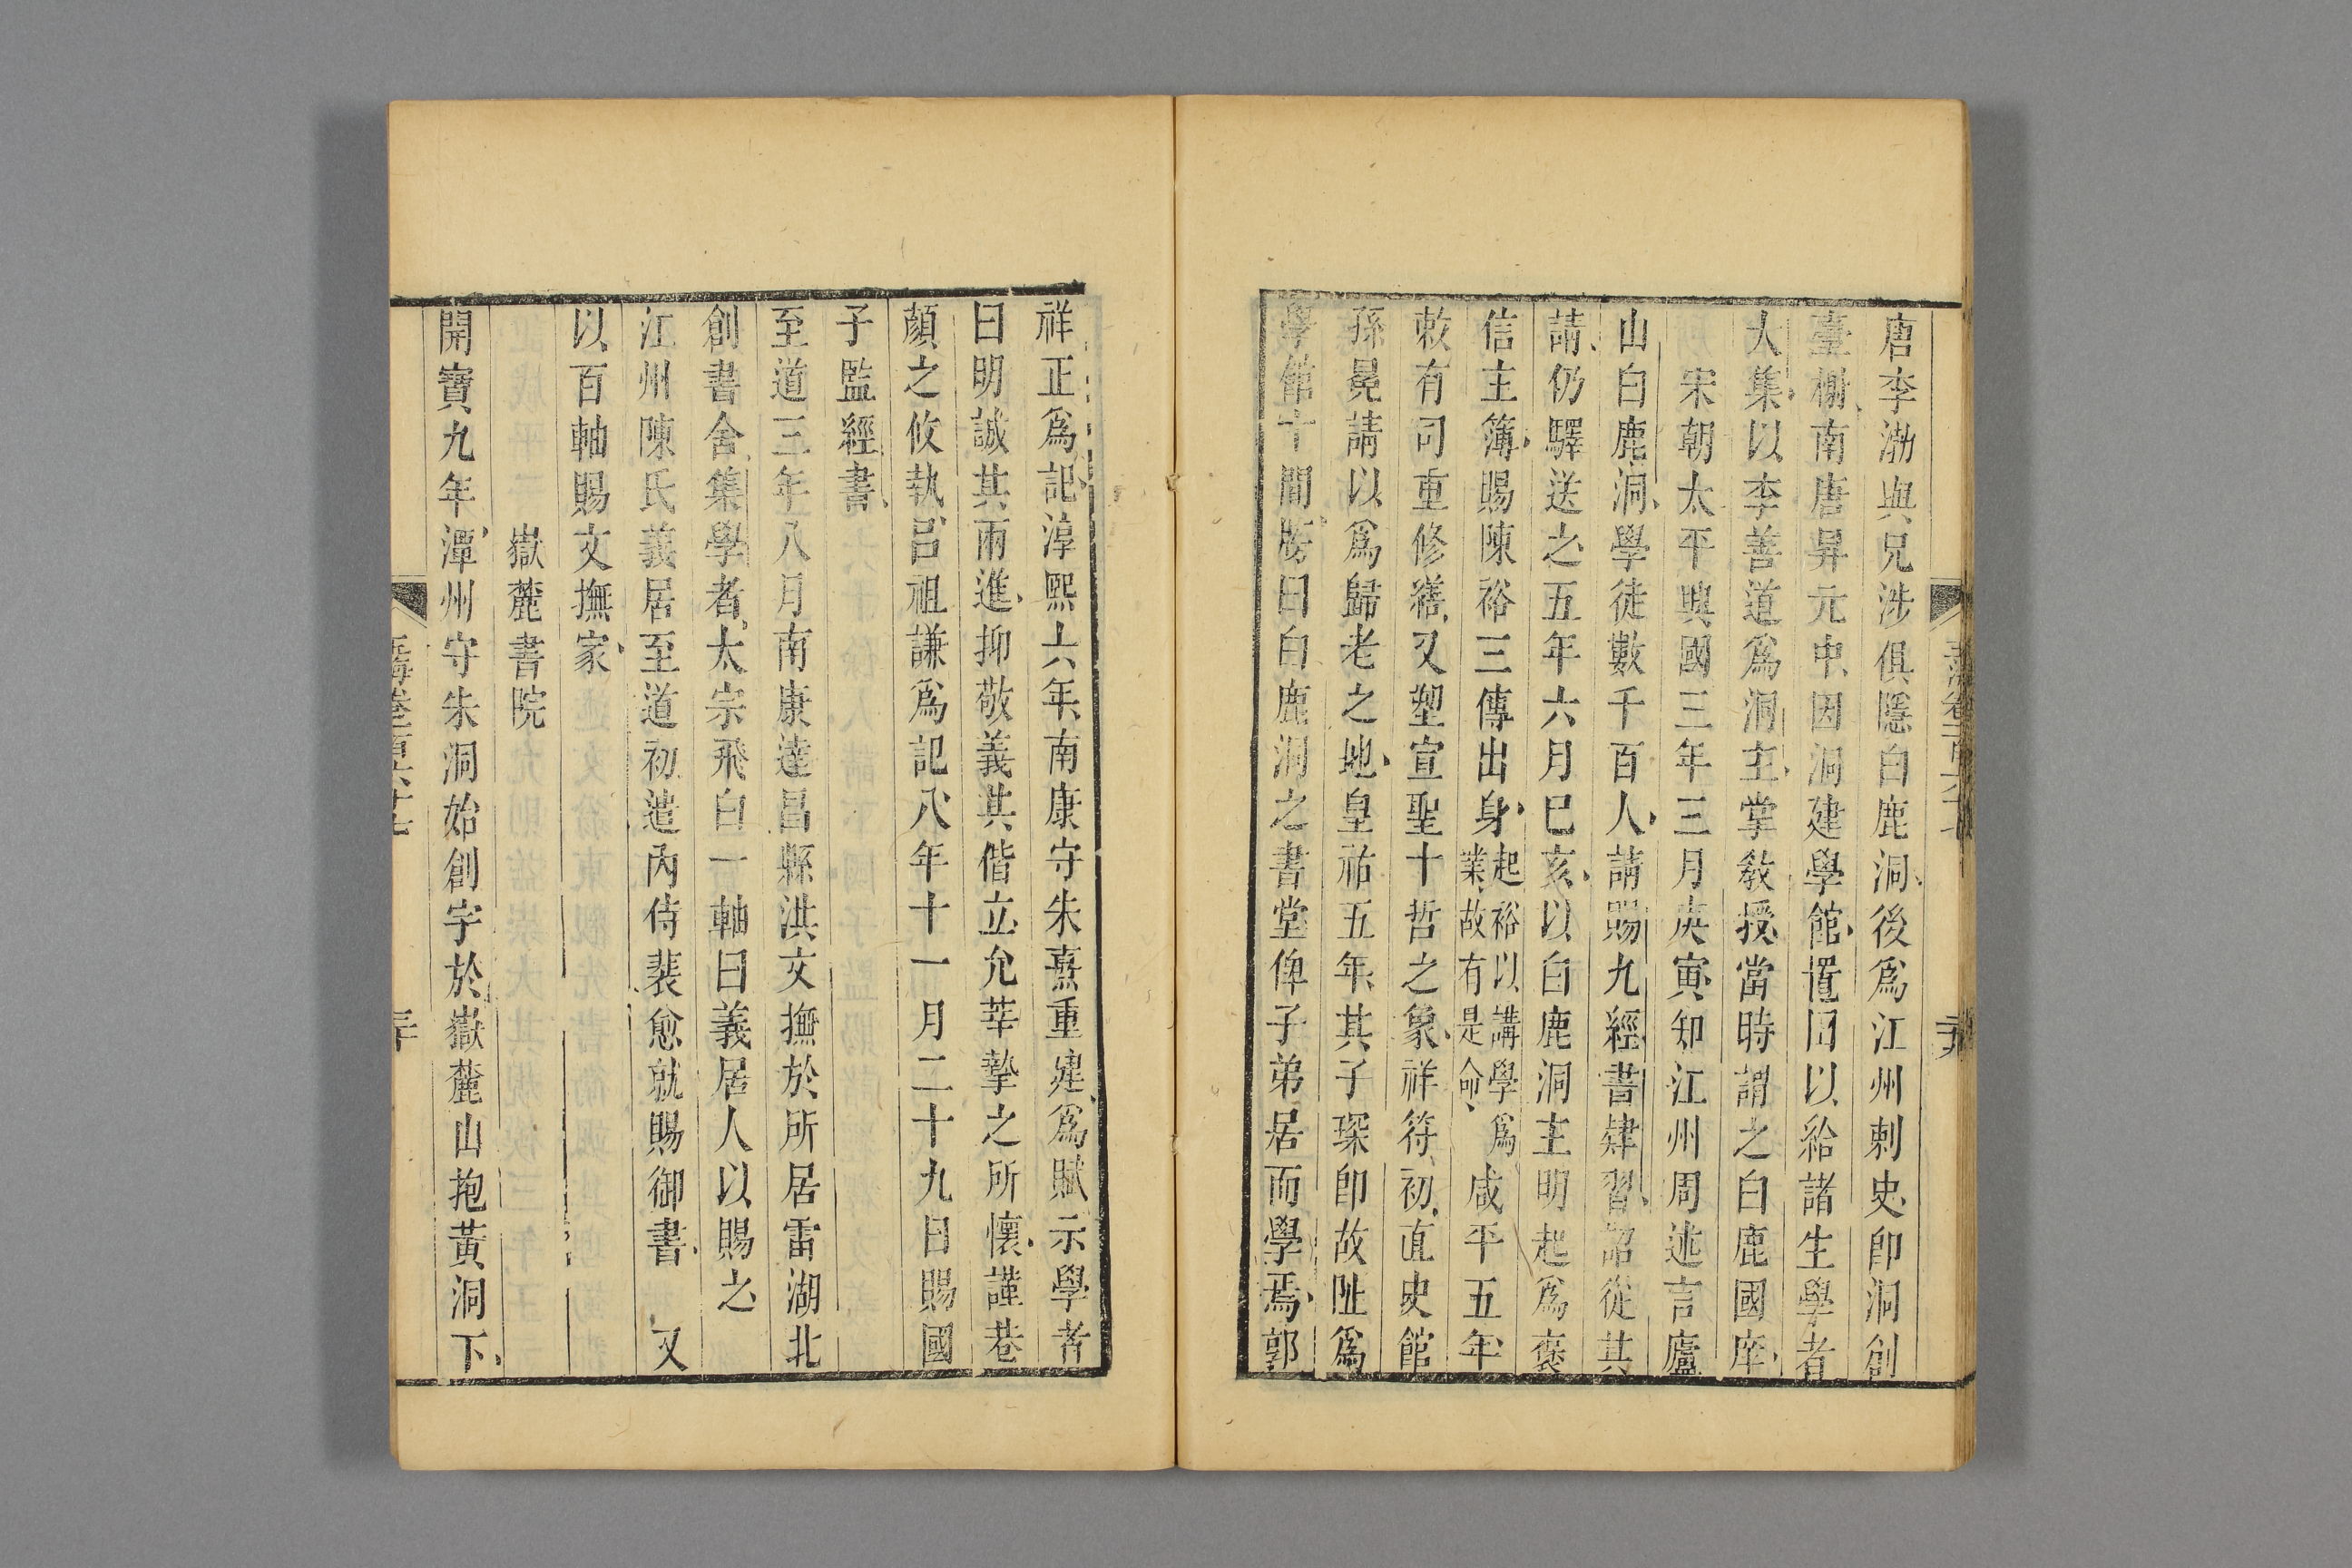 唐李渤與兄涉俱隱白鹿洞後爲江州刺史卽洞創
臺榭南唐昇元中因洞建學館置田以給諸生學者
大集以李善道爲洞主掌敎授當時謂之白鹿國庠
宋朝太平興國三年三月庚寅知江州周述言廬
山白鹿洞學徒數千百人請賜九經書肄習詔從其
請仍驛送之五年六月巳亥以白鹿洞主明起爲褒
信主簿賜陳裕三傳出身起裕以講學爲業故有是命咸平五年
敕有司重修繕又塑宣聖十哲之象祥符初直史館
孫冕請以爲歸老之地皇祐五年其子琛卽故阯爲
學館十間牓曰白鹿洞之書堂俾子弟居而學焉郭
祥正爲記淳熙六年南康守朱熹重建爲賦示學者
曰明誠其兩進抑敬義其偕立允莘摯之所懷謹巷
顏之攸執呂祖謙爲記八年十一月二十九日賜國
子監經書
至道三年八月南康達昌縣洪文撫於所居雷湖北
創書舍集學者太宗飛白一軸曰義居人以賜之
江州陳氏義居至道初遣內侍裴愈就賜御書 又
以百軸賜文撫家
嶽麓書院
開寶九年潭州守朱洞始創宇於嶽麓山抱黃洞下